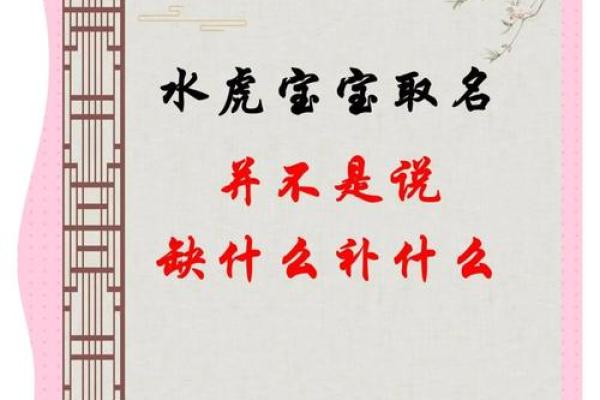 水虎宝宝取名
并不是说
缺什么补什么